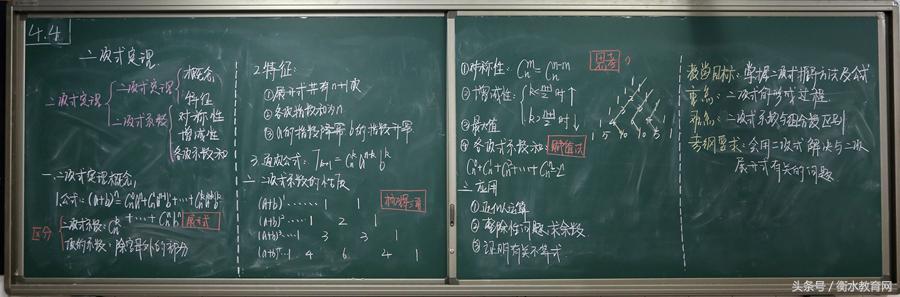 4.4
二项式定理
二项式定理
二项式定理
概念
特征
二项式系数
对称性
增减性
各项系数和
一、二项式定理概念
1.公式:(a+b)ⁿ=
+…+
展开式
区分
二项式系数:
项的系数:除字母外的部分
2.特征:
①展开式共有n+1项
②各项指数和为n
③a的指数降幂 b的指数升幂
3.通项公式:Tₖ₊₁=Cₙᵏaⁿ⁻ᵏbᵏ
二、二项式系数的性质
(a+b)¹…… 1 1
(a+b)²…… 1 2 1
(a+b)³… 1 3 3 1
(a+b)⁴… 1 4 6 4 1
杨辉三角
①对称性:Cₙᵐ=Cₙⁿ⁻ᵐ
②增减性:
③最大值
④各项式系数和:
赋值法
Cₙ⁰+Cₙ¹+Cₙ²+…+Cₙⁿ=2ⁿ
思考
1 5 10 10 5 1
三、应用
①近似运算
②整除性问题,求余数
③证明有关不等式
教学目标:掌握二项式推导方法及公式
重点:二项式的形成过程
难点:二项式系数与项系数区别
考纲要求:会用二项式解决与二项
展开式有关的问题
头条号／衡水教育网